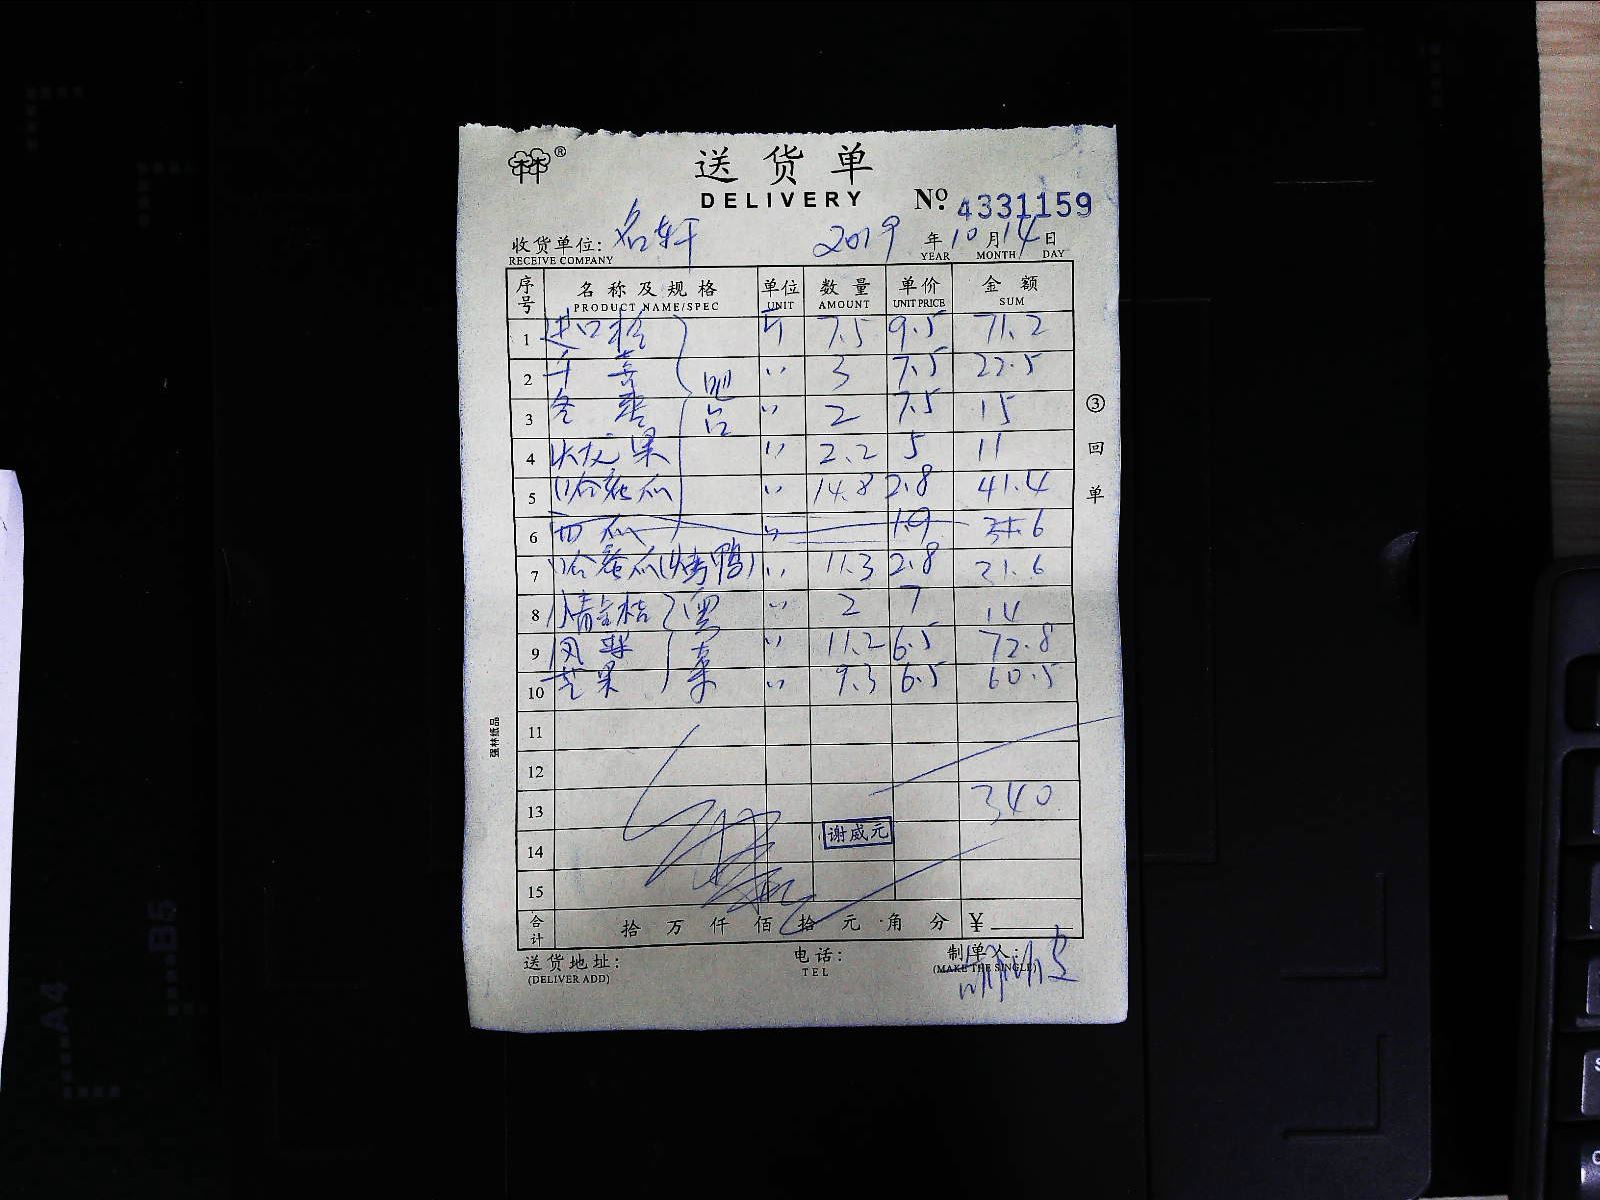 林林®
送货单
DELIVERY
No. 4331159
收货单位: 名轩 2019 年 10 月 14 日
RECEIVE COMPANY YEAR MONTH DAY
序号 名称及规格 单位 数量 单价 金额
PRODUCT NAME/SPEC UNIT AMOUNT UNIT PRICE SUM
1 进口 斤 7.5 9.5 71.2
2 千喜 〃 3 7.5 22.5
3 冬枣 〃 2 7.5 15
吧台
4 火龙果 〃 2.2 5 11
5 哈密瓜 〃 14.8 2.8 41.4
6 西瓜 〃 1.9
7 哈蜜瓜(烤鸭) 〃 11.3 2.8 31.6
8 小青金桔 〃 2 7 14
9 凤梨 〃 11.2 6.5 72.8
10 芒果 〃 9.3 6.5 60.5
11
12
13 340
谢威元
14
15
合计 拾 万 仟 佰 拾 元 角 分 ¥
送货地址: 电话: 制单人:
(DELIVER ADD) TEL (MAKE THE SINGLE)
③回单
强林纸品
A4
B5